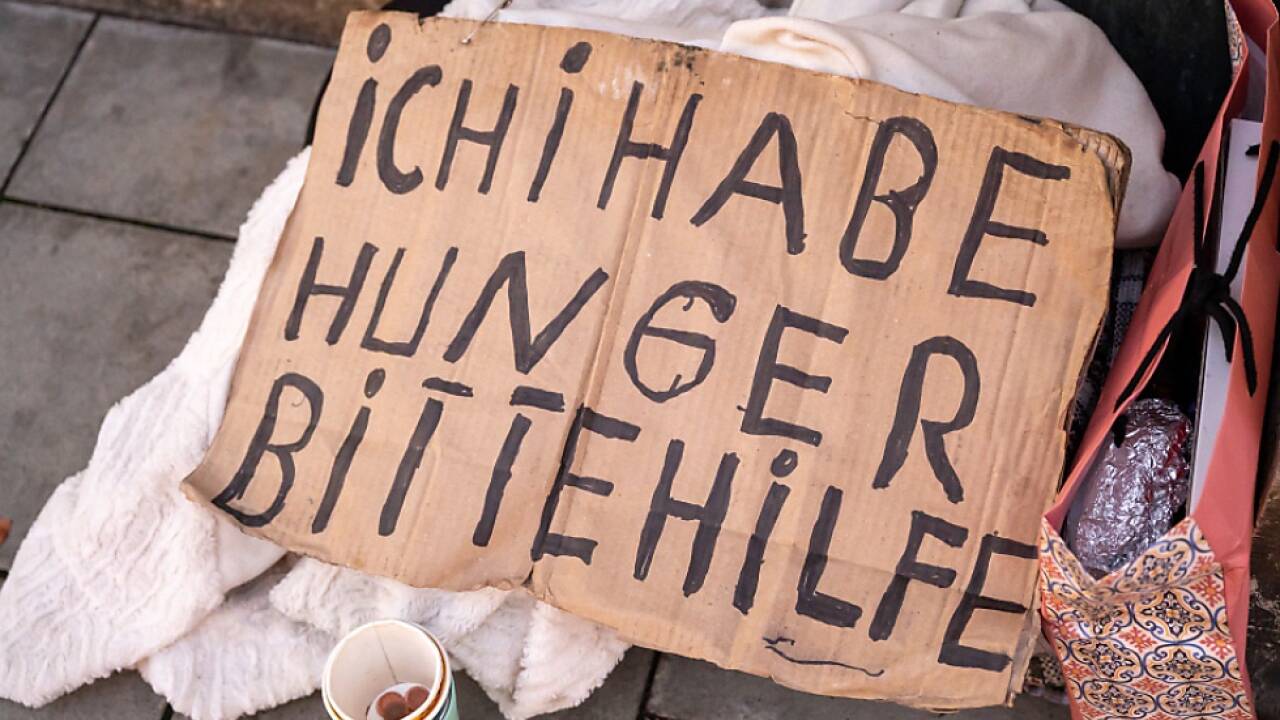 iCHi HABE
HUNGER
BiTTE HiLFE